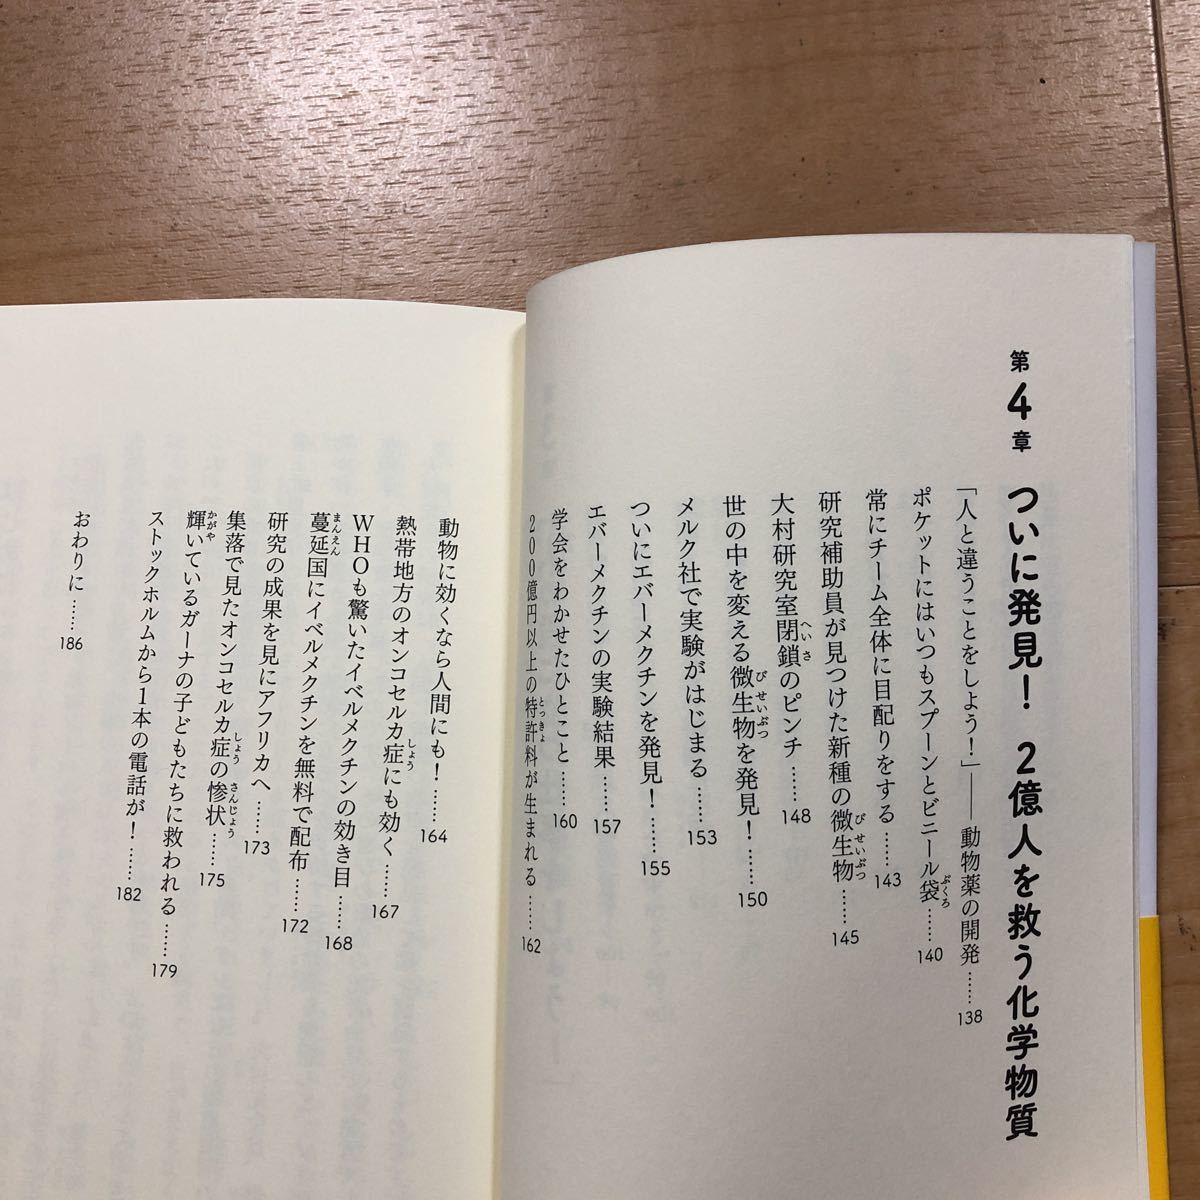 第4章 ついに発見！ 2億人を救う化学物質
「人と違うことをしよう！」――動物薬の開発……138
ポケットにはいつもスプーンとビニール袋……140
常にチーム全体に目配りをする……143
研究補助員が見つけた新種の微生物……145
大村研究室閉鎖のピンチ……148
世の中を変える微生物を発見！……150
メルク社で実験がはじまる……153
ついにエバーメクチンを発見！……155
エバーメクチンの実験結果……157
学会をわかせたひとこと……160
200億円以上の特許料が生まれる……162
動物に効くなら人間にも！……164
熱帯地方のオンコセルカ症にも効く……167
WHOも驚いたイベルメクチンの効き目……168
蔓延国にイベルメクチンを無料で配布……172
研究の成果を見にアフリカへ……173
集落で見たオンコセルカ症の惨状……175
輝いているガーナの子どもたちに救われる……179
ストックホルムから1本の電話が！……182
おわりに……186